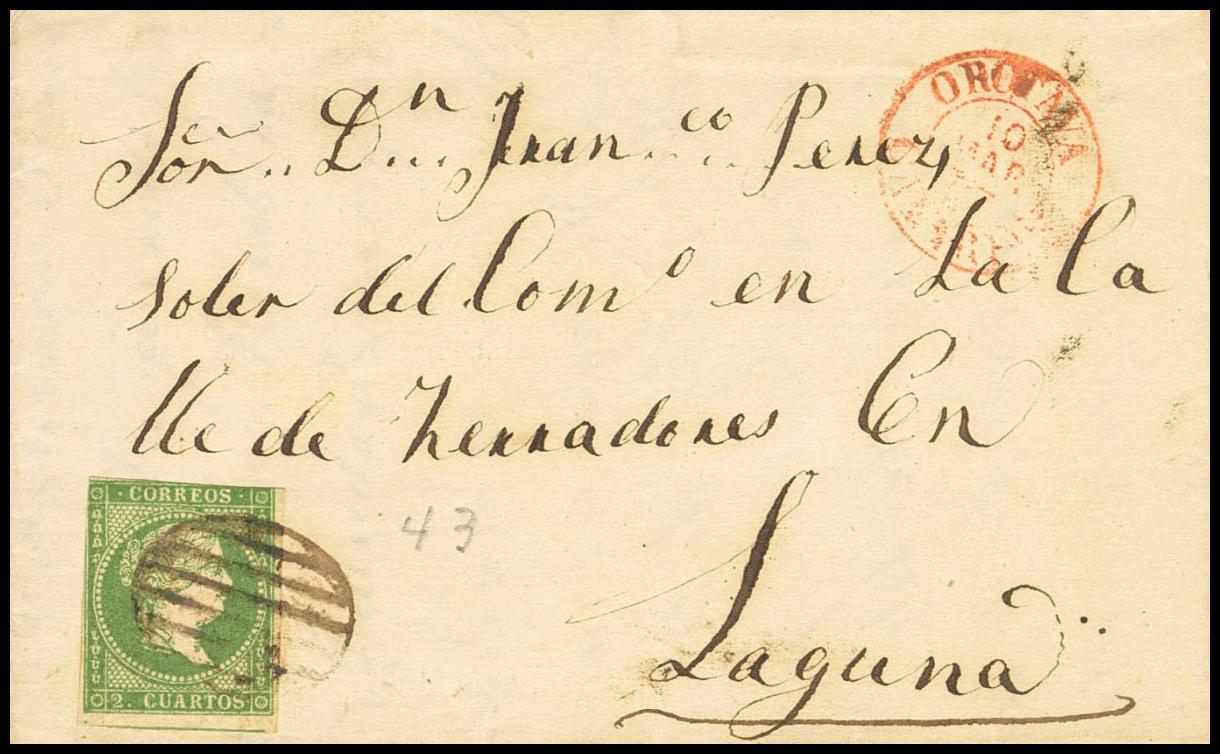 OROTAVA
10
MAR
CANARIAS
Sor. Dn. Franco. Perez,
soler del Como en La Ca
lle de herradores En
Laguna
43
CORREOS
2. CUARTOS